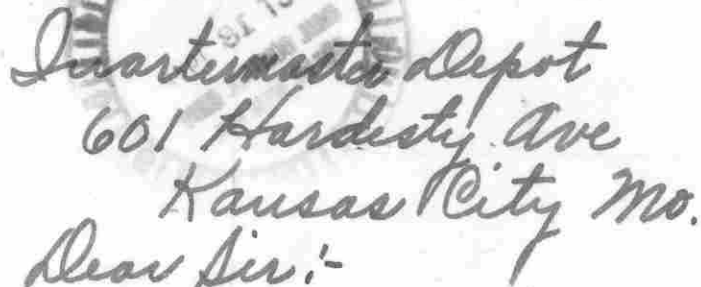 Quartermaster Depot
601 Hardesty Ave
Kansas City Mo.
Dear Sir:-